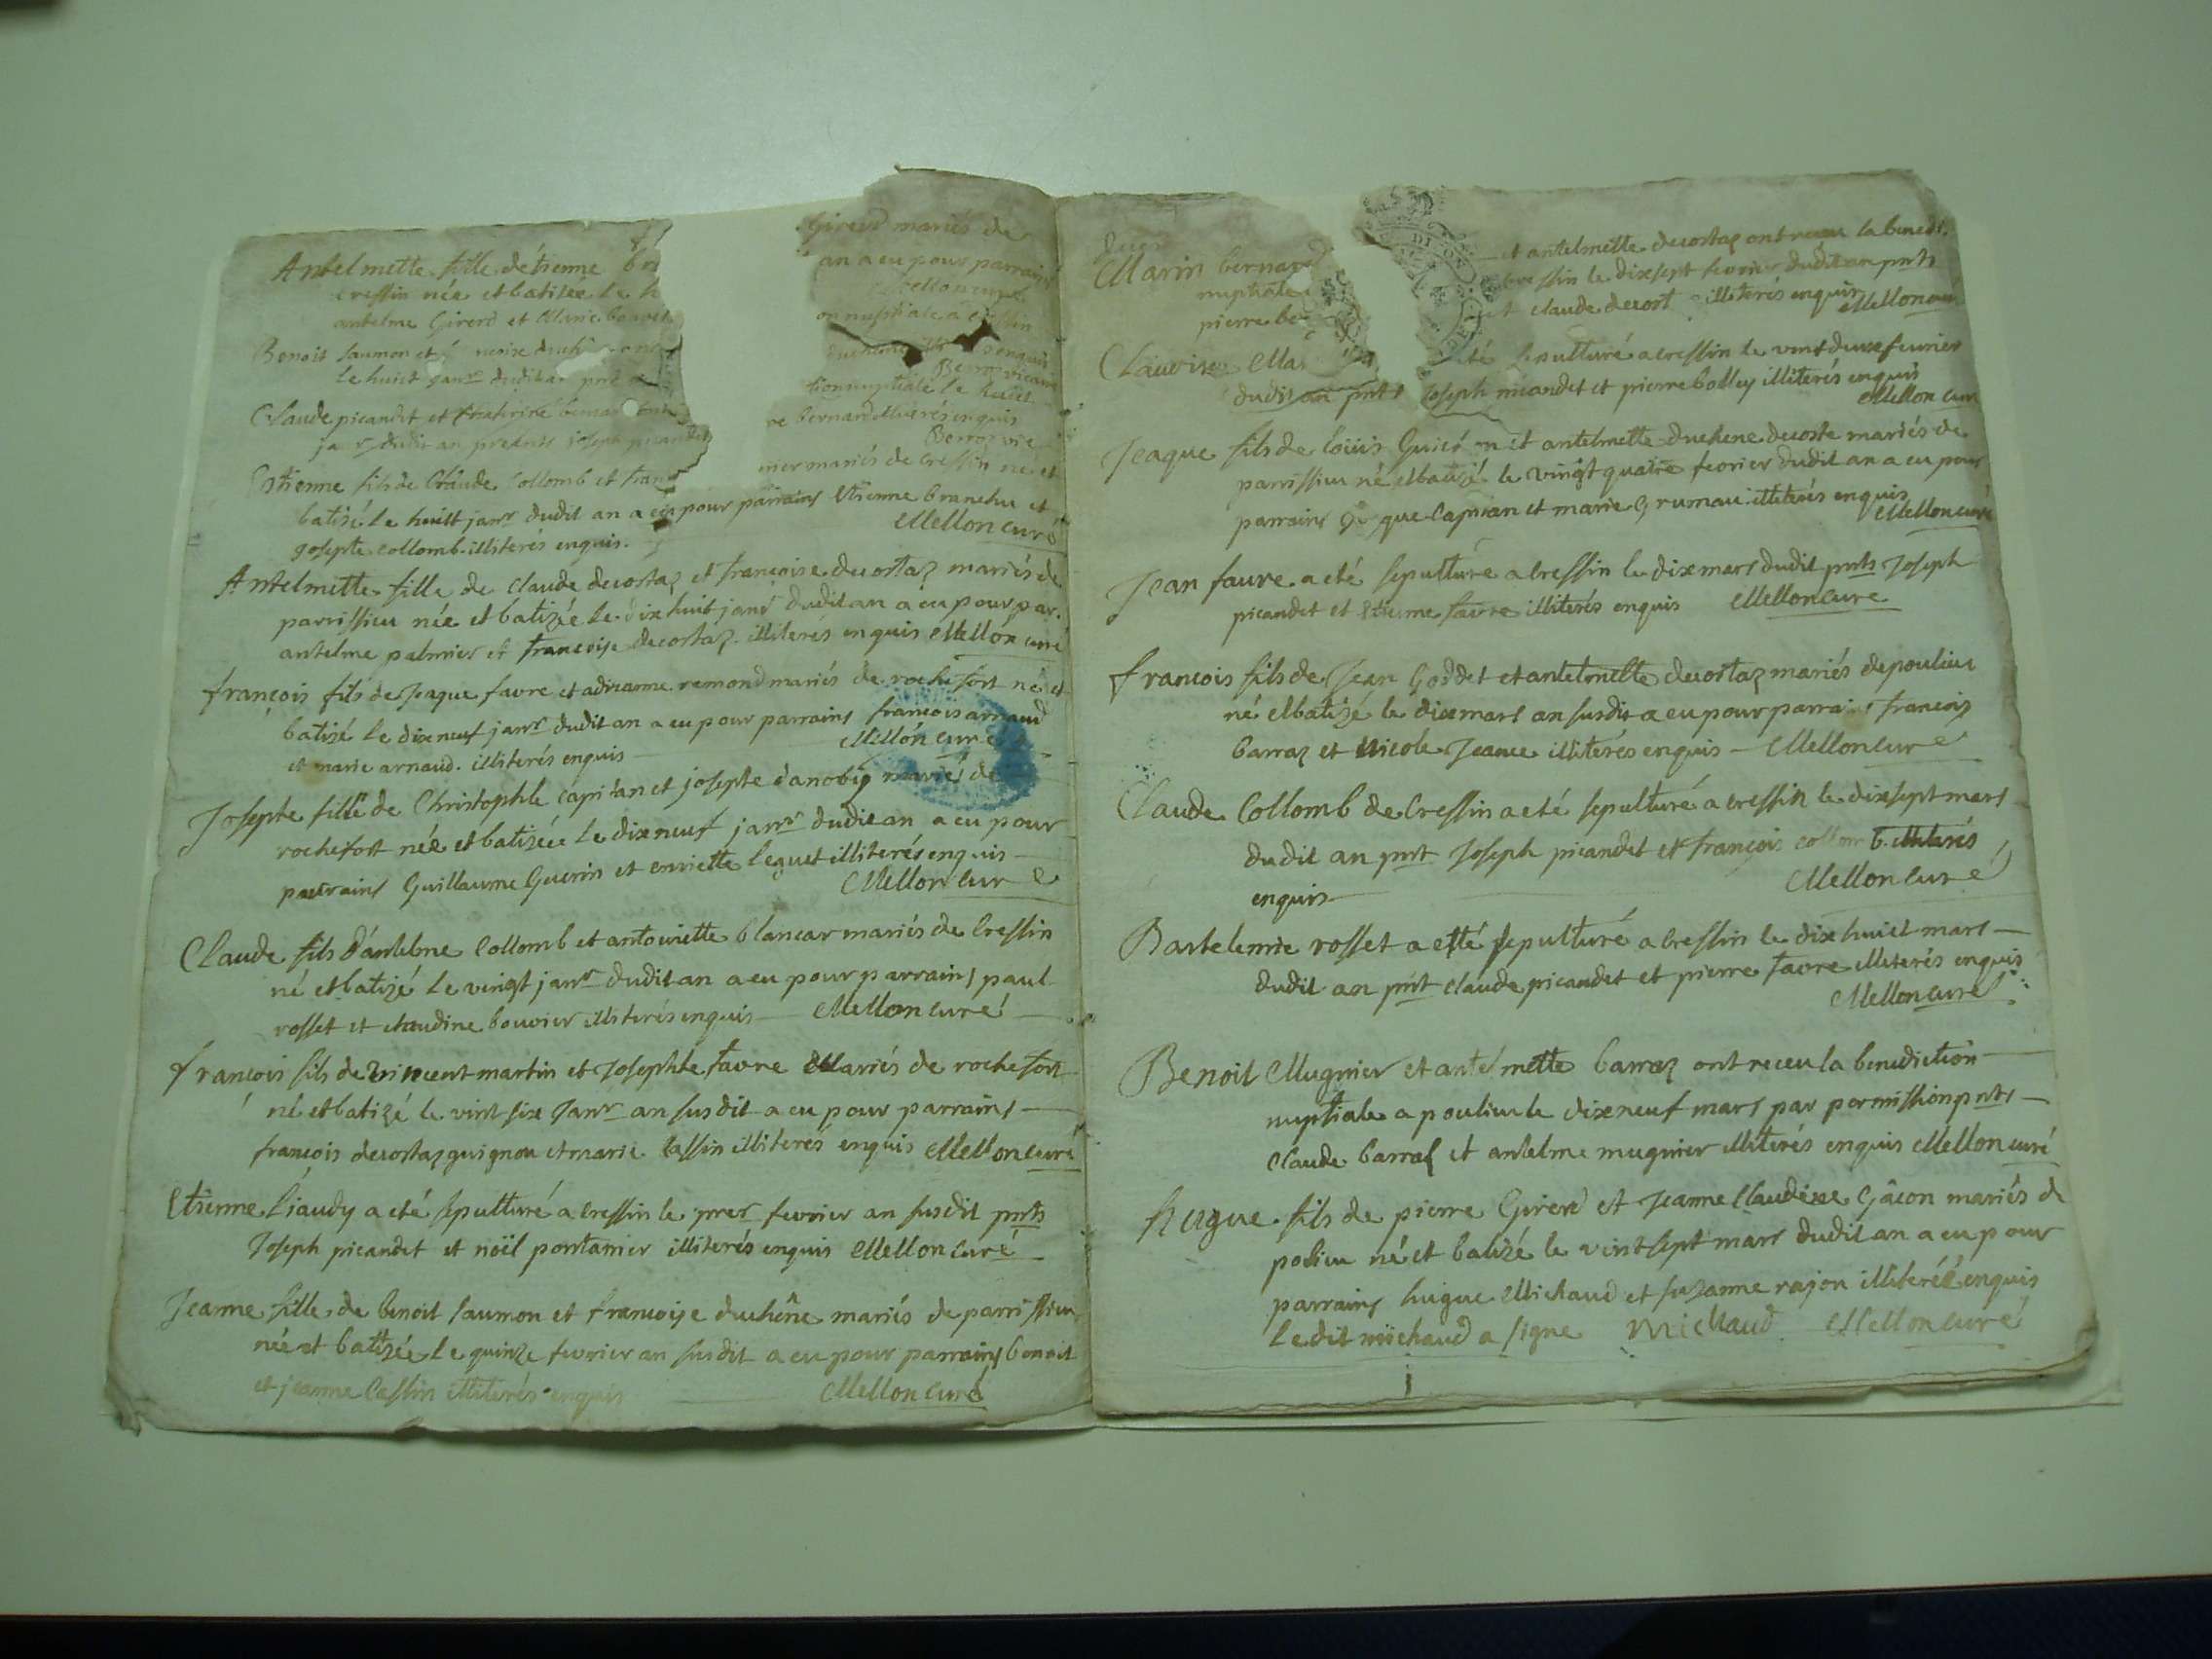 Antelmette fille de étienne
Girerd mariés de
cressin née et batisée le
an a eu pour parrains
antelme Girerd et Marie
Mellon curé
Benoit saumon et
on nuptiale a cressin
le huict janr dudit an
enquis
Berroz vicaire
Claude picandet et
tion nuptiale le huict
janr dudit an presents joseph picandet
re bernard illiterés enquis
Berroz vic
Estienne fils de Claude Collomb et fran
nier mariés de Cressin né et
batisé le huitt janr dudit an a eu pour parrains Etienne branchu et
josepte collomb illiterés enquis. Mellon curé
Antelmette fille de claude decostaz et françoise decostaz mariés de
parrissieu née et batizée le dix huit janr dudit an a eu pour par.
antelme palmier et francoise decostaz illiterés enquis Mellon curé
françois fils de Jaque favre et adrianne remond mariés de rochefort né et
batizé le dix neuf janr dudit an a eu pour parrains françois arnaud
et marie arnaud. illiterés enquis Mellon curé
Josepte fille de Christophle capitan et josepte danobig mariés de
rochefort née et batizée le dix neuf janr dudit an a eu pour
parrains Guillaume Guerin et enriette lequet illiterés enquis
Mellon curé
Claude fils d'antelme Collomb et antoinette blancar mariés de Cressin
né et batizé le vingt janr dudit an a eu pour parrains paul
rosset et claudine bouvier illiterés enquis Mellon curé
françois fils de vincent martin et Josephte favre Mariés de rochefort
né et batizé le vint six Janr an susdit a eu pour parrains
françois decostaz guignon et marie cassin illiterés enquis Mellon curé
Etienne Liaudy a eté sepulturé a cressin le prer fevrier an susdit pnts
Joseph picandet et noël pontanier illiterés enquis Mellon curé
Jeanne fille de benoit saumon et francoise duchêne mariés de parrissieu
née et batizée le quinze fevrier an susdit a eu pour parrains benoit
et jeanne Cassin illiterés enquis Mellon curé
Marin bernard
et antelmette decostaz ont receu la benedi.
nuptiale
cressin le dixsept fevrier dudit an pnts
pierre
et claude decost illiterés enquis Mellon curé
Claudine
té sepulturé a cressin le vint deux fevrier
dudit an pnts Joseph picandet et pierre bolley illiterés enquis
Mellon curé
Jeaque fils de loüis Guict on et antelmette duchene decoste mariés de
parrissieu né et batizé le vingt quatre fevrier dudit an a eu pour
parrains que Capitan et marie illiterés enquis
Mellon curé
Jean favre a eté sepulturé a Cressin le dix mars dudit pnts Joseph
picandet et Etienne favre illiterés enquis Mellon curé
francois fils de Jean Goddet et antelmette decostaz mariés de poulieu
né et batizé le dix mars an susdit a eu pour parrains francois
barraz et Nicole Jeance illiterés enquis Mellon curé
Claude Collomb de Cressin a eté sepulturé a cressin le dixsept mars
dudit an pnt Joseph picandet et françois collomb. illiterés
enquis Mellon curé
Bartelemie rosset a etté sepulturé a cressin le dix huict mars
dudit an pnt claude picandet et pierre favre illiterés enquis
Mellon curé
Benoit Mugnier et antelmette barraz ont receu la benediction
nuptiale a poulieu le dix neuf mars par permission pnts
Claude barral et antelme mugnier illiterés enquis Mellon curé
hugue fils de pierre Girerd et Jeanne Claudine Gâcon mariés de
polieu né et batizé le vint sept mars dudit an a eu pour
parrains hugue Michaud et suzanne rajon illiterée enquis
Le dit michaud a signe Michaud Mellon curé